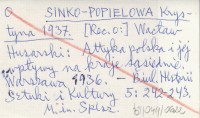 O SINKO-POPIELOWA Krys-
tyna 1937. [Rec. o:] Wacław
Husarski: Attyka polska i jej
wpływy na kraje sąsiednie.
Warszawa 1936. – Biul. Historii
Sztuki i Kultury 5: 242-243.
M. in. Spisz.